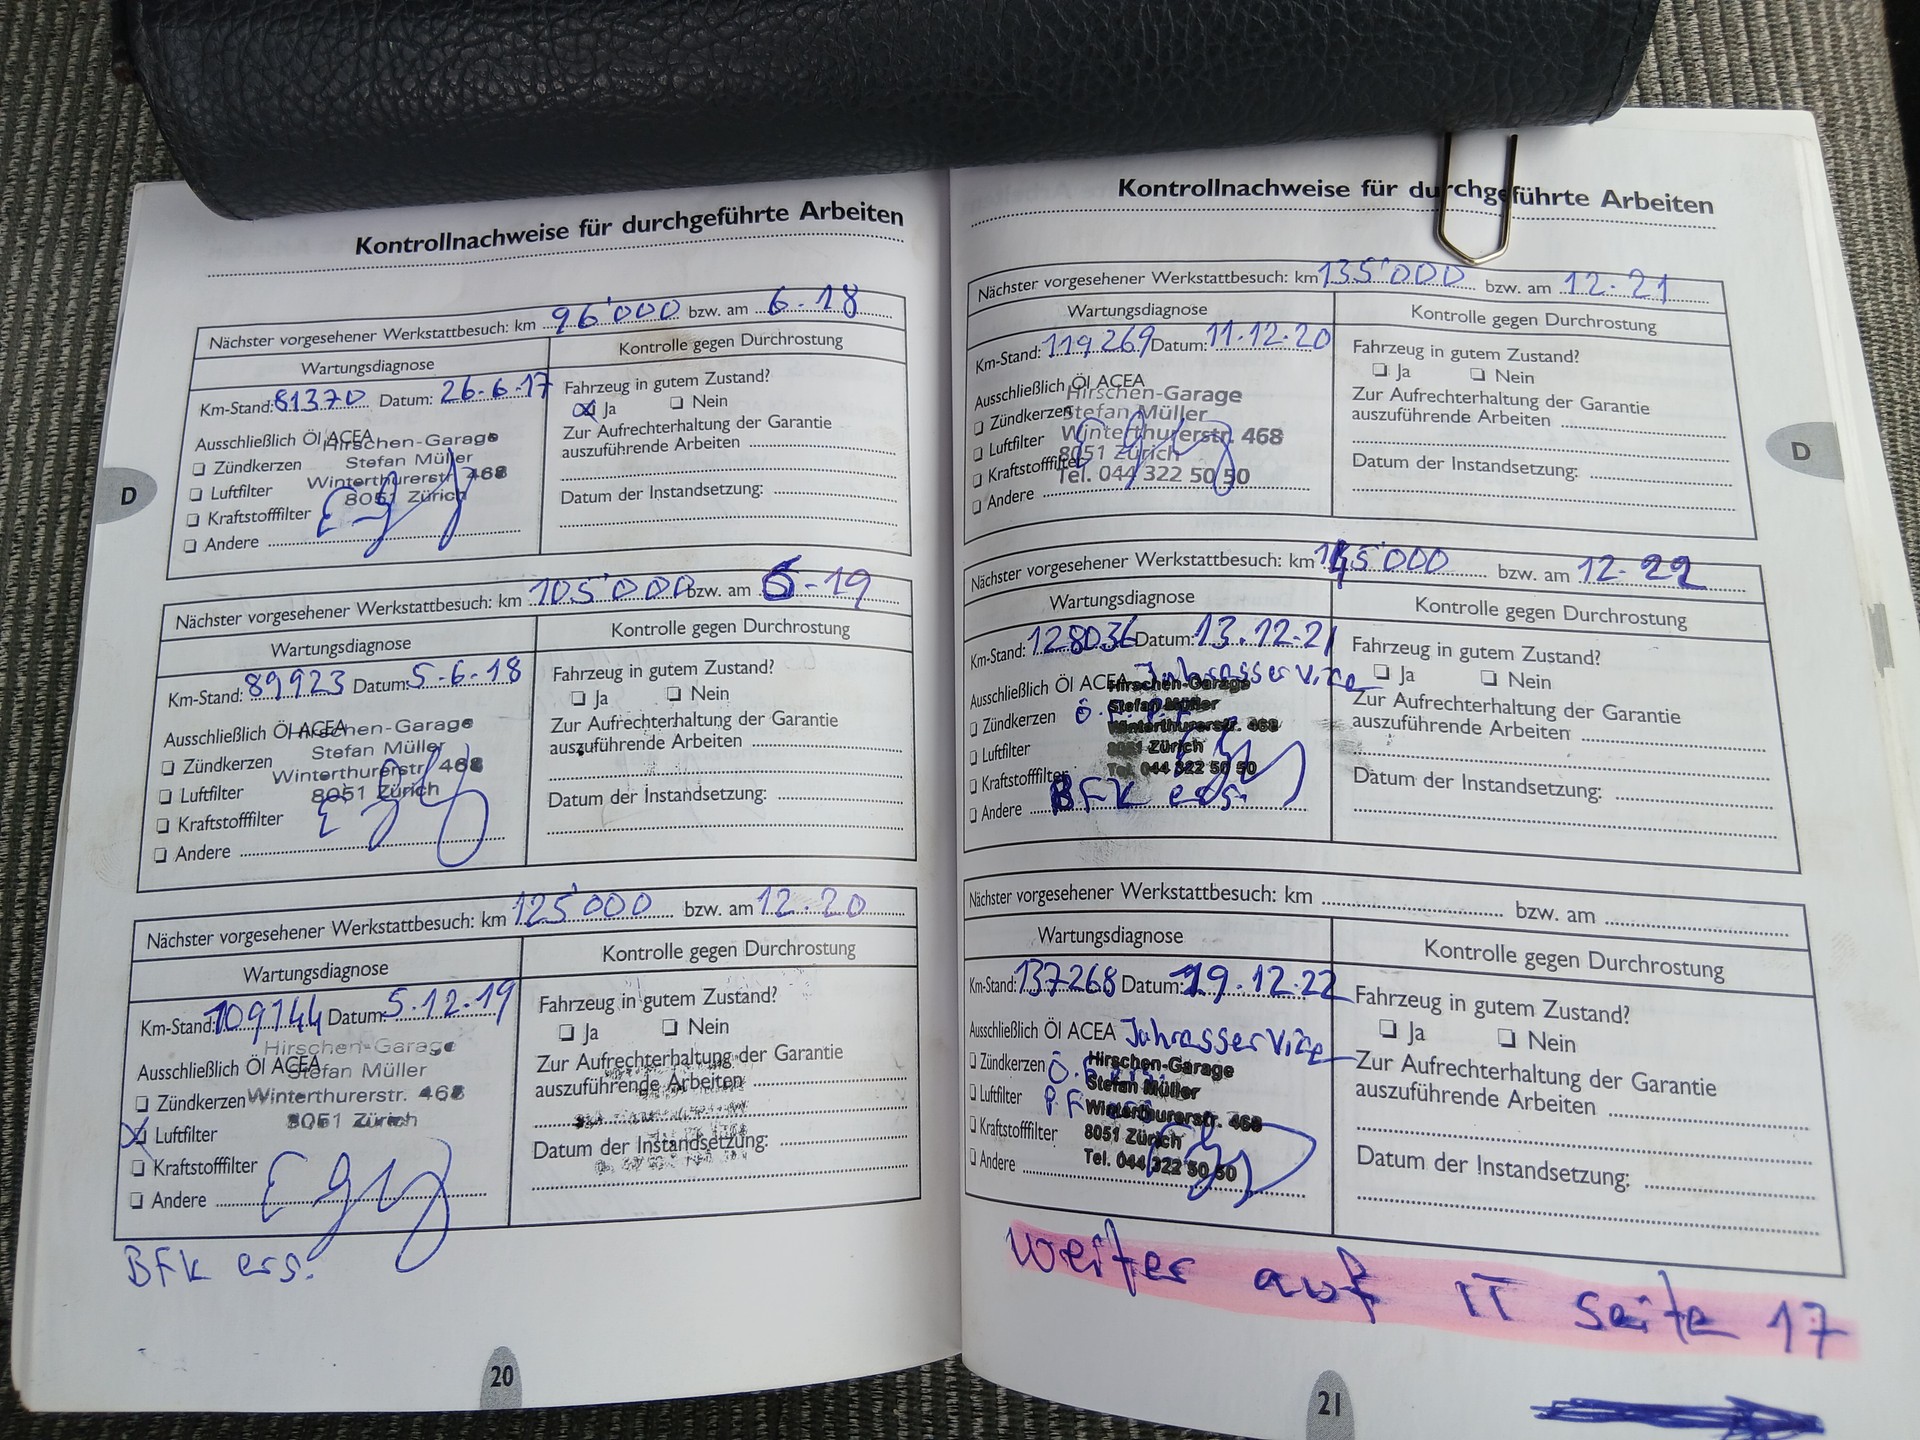 Kontrollnachweise für durchgeführte Arbeiten
Nächster vorgesehener Werkstattbesuch: km 96'000 bzw. am 6-18
Wartungsdiagnose
Kontrolle gegen Durchrostung
Km-Stand: 81370 Datum: 26-6-17
Fahrzeug in gutem Zustand?
Ja
Nein
Ausschließlich Öl ACEA
Zündkerzen
Luftfilter
Kraftstofffilter
Andere
Hirschen-Garage
Stefan Müller
Winterthurerstr. 468
8051 Zürich
Zur Aufrechterhaltung der Garantie
auszuführende Arbeiten
Datum der Instandsetzung:
D
Nächster vorgesehener Werkstattbesuch: km 105'000 bzw. am 6-19
Wartungsdiagnose
Kontrolle gegen Durchrostung
Km-Stand: 89923 Datum: 5-6-18
Fahrzeug in gutem Zustand?
Ja
Nein
Ausschließlich Öl ACEA
Zündkerzen
Luftfilter
Kraftstofffilter
Andere
Hirschen-Garage
Stefan Müller
Winterthurerstr. 468
8051 Zürich
Zur Aufrechterhaltung der Garantie
auszuführende Arbeiten
Datum der Instandsetzung:
Nächster vorgesehener Werkstattbesuch: km 125'000 bzw. am 12-20
Wartungsdiagnose
Kontrolle gegen Durchrostung
Km-Stand: 109144 Datum: 5-12-19
Fahrzeug in gutem Zustand?
Ja
Nein
Ausschließlich Öl ACEA
Zündkerzen
Luftfilter
Kraftstofffilter
Andere
Hirschen-Garage
Stefan Müller
Winterthurerstr. 468
8051 Zürich
Zur Aufrechterhaltung der Garantie
auszuführende Arbeiten
Datum der Instandsetzung:
BFK ers.
20
Kontrollnachweise für durchgeführte Arbeiten
Nächster vorgesehener Werkstattbesuch: km 135'000 bzw. am 12-21
Wartungsdiagnose
Kontrolle gegen Durchrostung
Km-Stand: 119269 Datum: 11.12.20
Fahrzeug in gutem Zustand?
Ja
Nein
Ausschließlich Öl ACEA
Zündkerzen
Luftfilter
Kraftstofffilter
Andere
Hirschen-Garage
Stefan Müller
Winterthurerstr. 468
8051 Zürich
Tel. 044 322 50 50
Zur Aufrechterhaltung der Garantie
auszuführende Arbeiten
Datum der Instandsetzung:
D
Nächster vorgesehener Werkstattbesuch: km 145'000 bzw. am 12-22
Wartungsdiagnose
Kontrolle gegen Durchrostung
Km-Stand: 128036 Datum: 13.12.21
Fahrzeug in gutem Zustand?
Ja
Nein
Ausschließlich Öl ACEA
Zündkerzen
Luftfilter
Kraftstofffilter
Andere BFK ers.
Hirschen-Garage
Stefan Müller
Winterthurerstr. 468
8051 Zürich
Tel. 044 322 50 50
Zur Aufrechterhaltung der Garantie
auszuführende Arbeiten
Datum der Instandsetzung:
Nächster vorgesehener Werkstattbesuch: km bzw. am
Wartungsdiagnose
Kontrolle gegen Durchrostung
Km-Stand: 137268 Datum: 19.12.22
Fahrzeug in gutem Zustand?
Ja
Nein
Ausschließlich Öl ACEA Jahrasservice
Zündkerzen
Luftfilter
Kraftstofffilter
Andere
Hirschen-Garage
Stefan Müller
Winterthurerstr. 468
8051 Zürich
Tel. 044 322 50 50
Zur Aufrechterhaltung der Garantie
auszuführende Arbeiten
Datum der Instandsetzung:
weiter auf IT seite 17
21